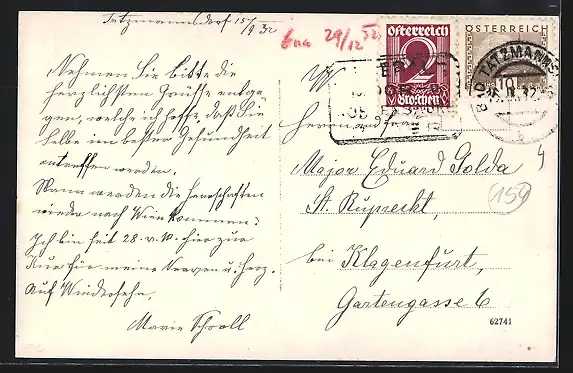 Tatzmannsdorf 15/9 32
Nehmen Sie bitte die
herzlichsten Grüße entge-
gen, welche ich hoffe, daß Sie
selbe im besten Gesundheit
antreffen werden.
Wann werden die Herrschaften
wieder nach Wien kommen?
Ich bin seit 28. v. M. hier zur
Kur für meine Nerven u. Herz.
Auf Wiedersehn,
Marie Schroll
29/12 52
Österreich
2
Groschen
ÖSTERREICH
10
BAD TATZMANNS
W
Major Eduard Golda
St. Ruprecht,
bei Klagenfurt,
Gartengasse 6
159
62741